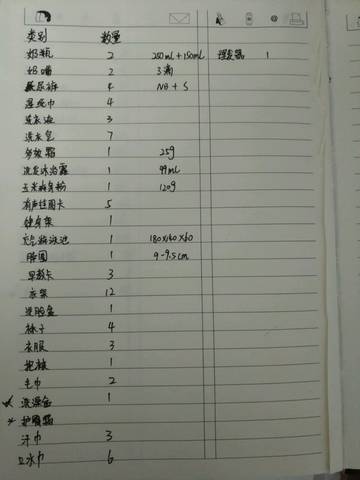 类别 数量
奶瓶 2 250mL+150mL 理发器 1
奶嘴 2 3滴
纸尿裤 4 NB+S
湿纸巾 4
洗衣液 3
洗衣皂 7
护臀霜 1 25g
洗发沐浴露 1 99mL
玉米爽身粉 1 120g
有声挂图卡 5
健身架 1
充气游泳池 1 180×140×60
脖圈 1 9-9.5cm
早教卡 3
衣架 12
洗脸盆 1
袜子 4
衣服 3
抱被 1
毛巾 2
洗澡盆 1
* 护臀霜
汗巾 3
口水巾 6